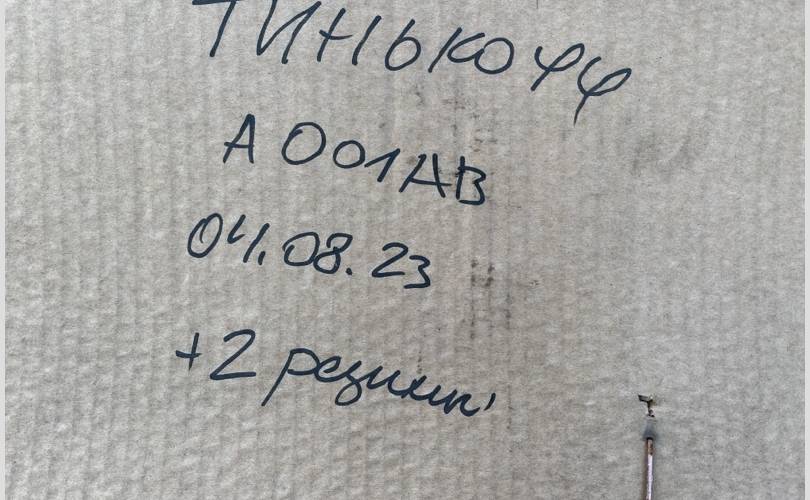 ТИНЬКОФФ
А001АВ
04.08.23
+2 резинки